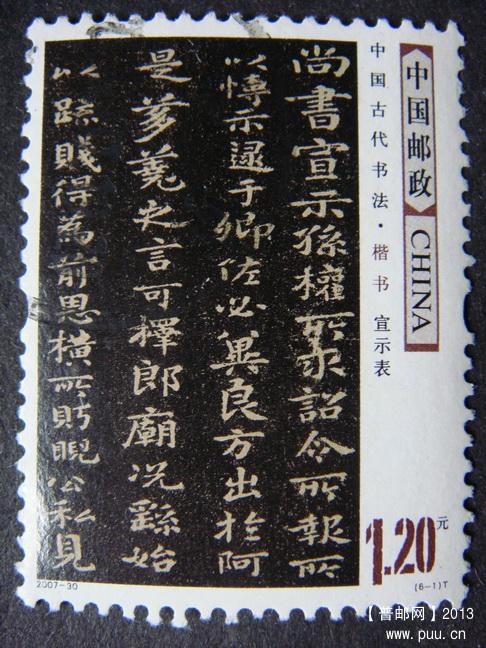 尚書宣示孫權所求詔令所報所
以博示逮于卿佐必冀良方出於阿
是芻蕘之言可擇郎廟況繇始
以疏賤得為前恩橫所眄睨公私見
中国古代书法·楷书 宣示表
中国邮政 CHINA
1.20元
2007-30
(6-1)T
【普邮网】2013
www.puu.cn